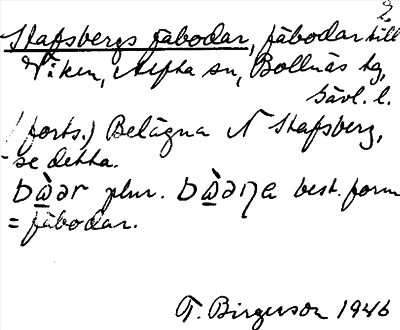 2.
Stafsbergs fäbodar, fäbodar till
Viken, Alfta sn, Bollnäs tg,
Gävl. l.
(forts.) Belägna N Stafsberg,
se detta.
plur. best. form
= fäbodar.
T. Birgerson 1946